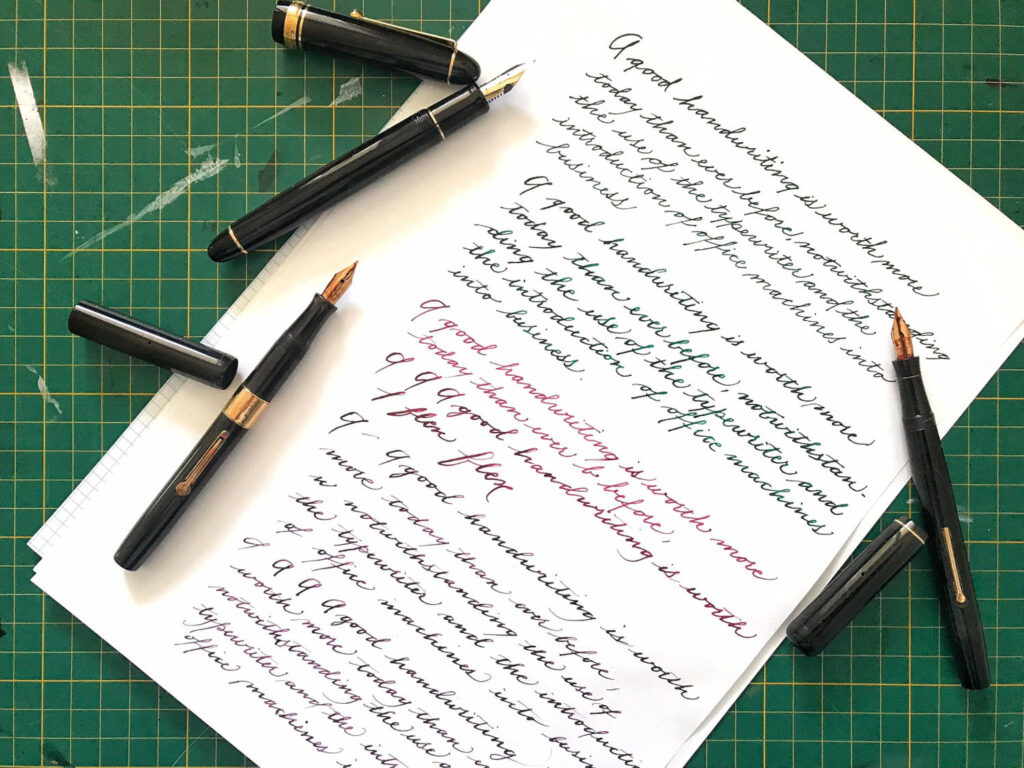 A good handwriting is worth more
today than ever before, notwithstanding
the use of the typewriter and the
introduction of office machines into
business
A good handwriting is worth more
today than ever before notwithstan-
ding the use of the typewriter and
the introduction of office machines
into business.
A good handwriting is worth more
today than ever before,
A A A A good handwriting is worth
of flex flex
A - A good handwriting is worth
more today than ever before,
in notwithstanding the use of
the typewriter and the introduction
of office machines into
A A A A good handwriting
worth more today than
notwithstanding the use
typewriter and the
office machines